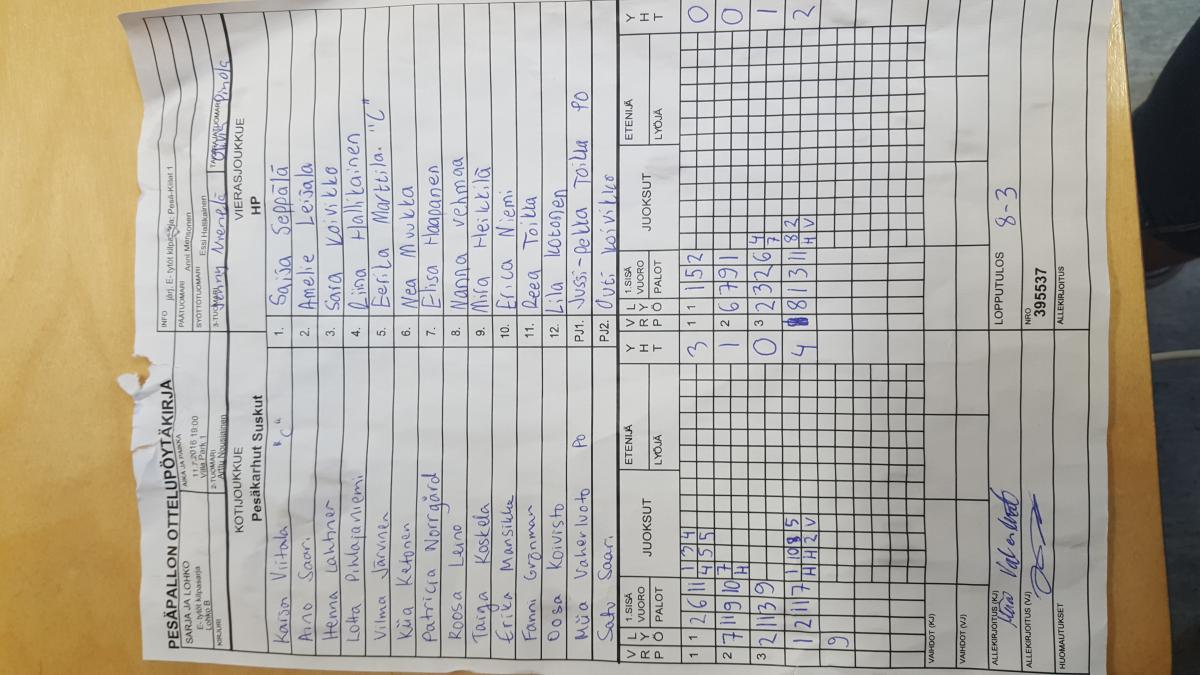 PESÄPALLON OTTELUPÖYTÄKIRJA
SARJA JA LOHKO
E- tytöt kilpasarja
Lohko B
AIKA JA PAIKKA
11.7.2016 19:00
Villa Park 1
INFO järj. E- tytöt kilpa
Pesä-Kiilat 1
PÄÄTUOMARI Anni Mansonen
SYÖTTÖTUOMARI Essi Hallikainen
KIRJURI
2-TUOMARI
Arttu Nousiainen
3-TUOMARI
Jenny
KOTIJOUKKUE
Pesäkarhut Suskut
VIERASJOUKKUE
HP
Karson Viitala "C" 1. Saija Seppälä
Aino Saari 2. Amelie Leisala
Henna Lahtinen 3. Sara Koivikko
Lotta Pihlajaniemi 4. Riina Hallikainen
Vilma Järvinen 5. Eerika Marttila "C"
Kiia Ketonen 6. Nea Muukka
Patricia Norrgård 7. Elisa Haapanen
Roosa Leino 8. Nanna Vehmaa
Taiga Koskela 9. Miira Heikkilä
Erika Mansikka 10. Erica Niemi
Fanni Grönman 11. Reea Toikka
Oosa Koivisto 12. Lila Kotonen
Miia Vaherluoto PO PJ1. Jussi-Pekka Toikka PO
Satu Saari PJ2. Outi Koivikko
V R P L Y Ö 1:SISÄ VUORO PALOT JUOKSUT ETENIJÄ LYÖJÄ Y H T V R P L Y Ö 1:SISÄ VUORO PALOT JUOKSUT ETENIJÄ LYÖJÄ Y H T
1 1 2 6 11 1 3 4 3 1 1 1 5 2 0
4 5 5
2 7 11 9 10 7 1 2 6 7 9 1 0
H
3 2 11 3 9 0 3 2 3 2 6 4 1
7
1 2 11 7 1 10 3 5 4 8 1 3 11 8 2 2
H H 2 V H V
9
VAIHDOT (KJ)
VAIHDOT (VJ)
ALLEKIRJOITUS (KJ) LOPPUTULOS 8-3
ALLEKIRJOITUS (VJ) NRO 395537
HUOMAUTUKSET ALLEKIRJOITUS